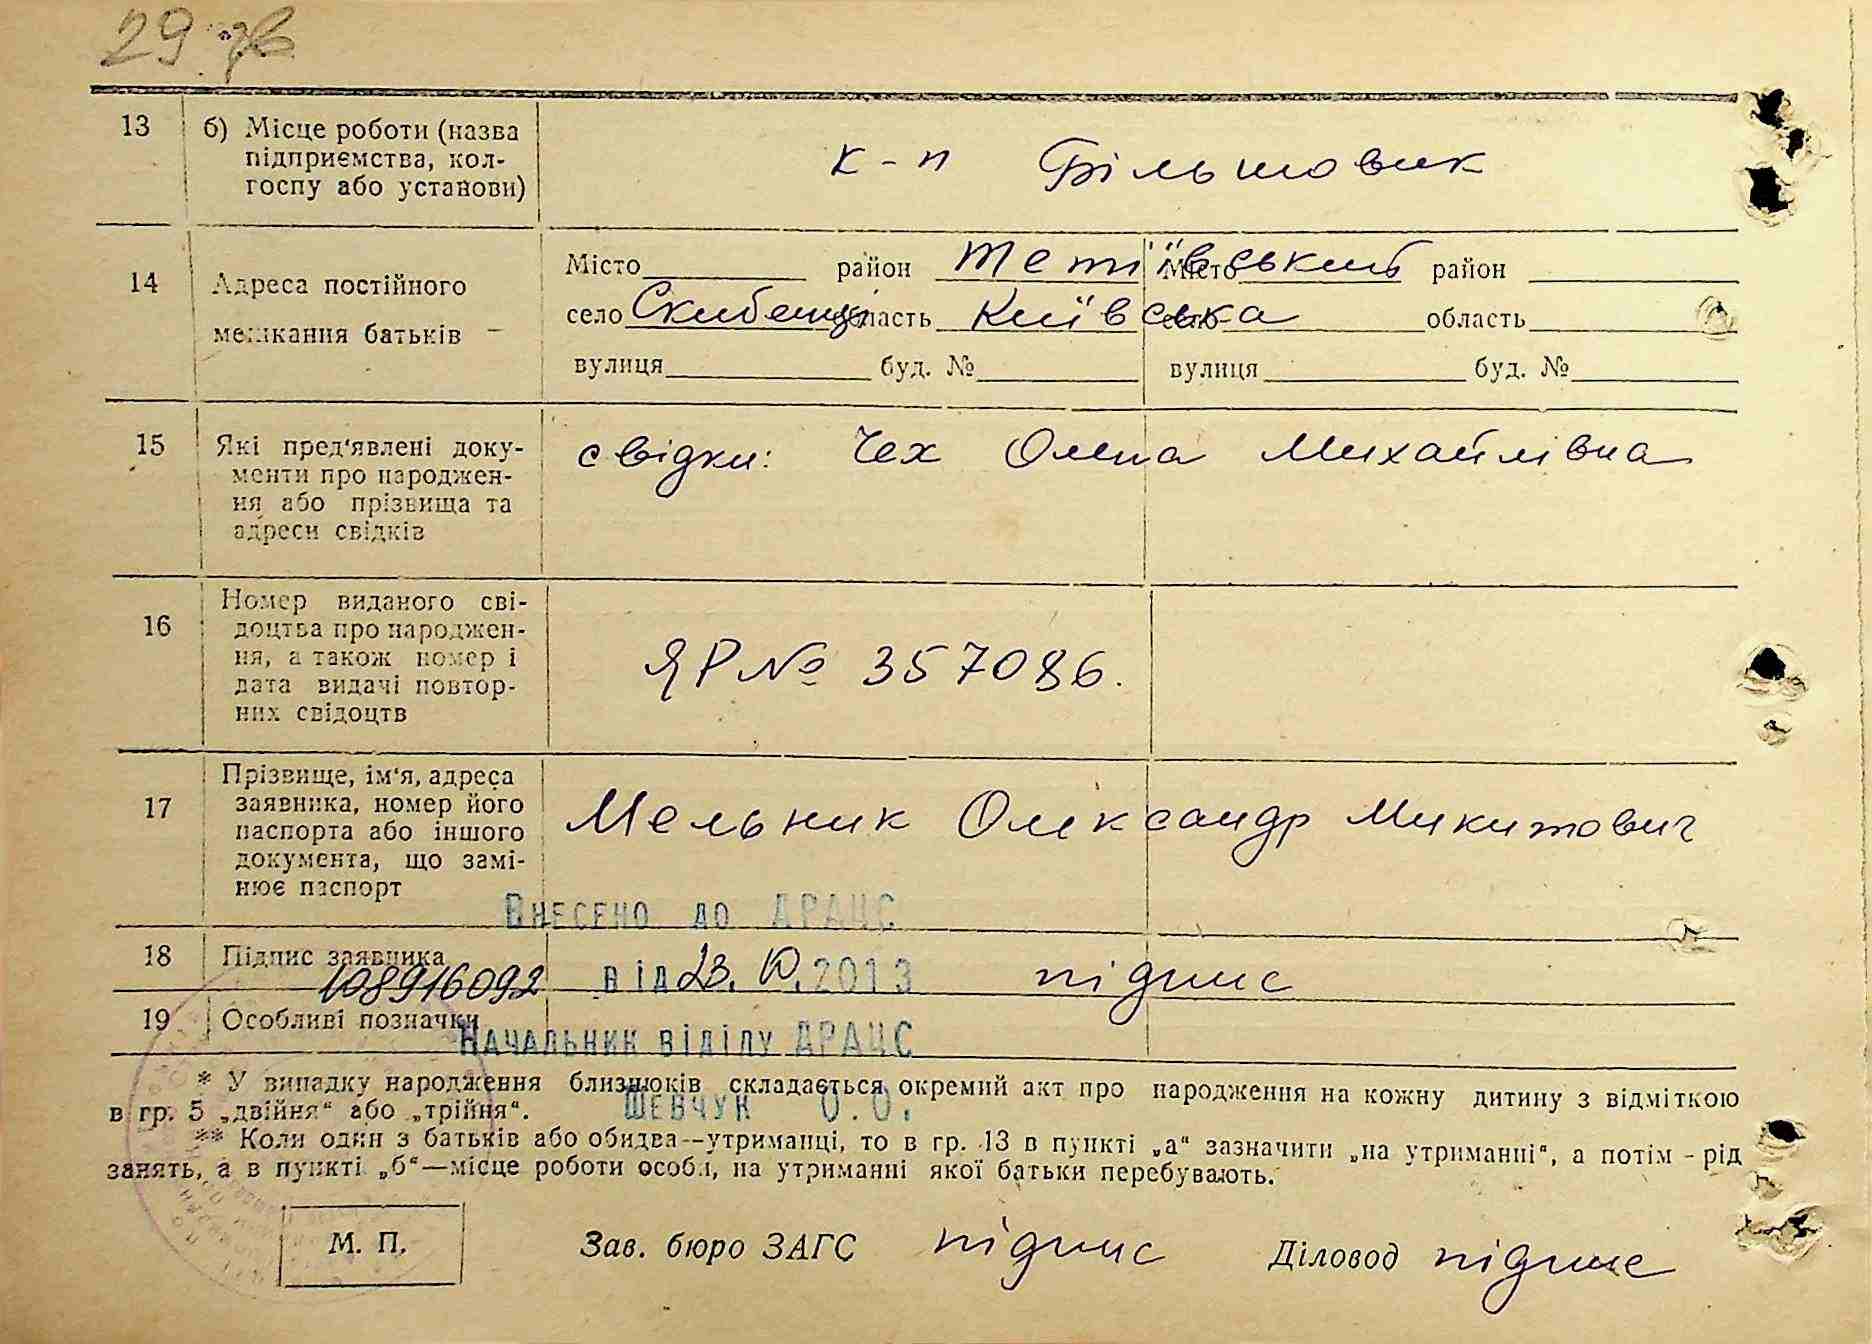 29 зв
13 б) Місце роботи (назва
підприємства, кол-
госпу або установи)
к-п Більшовик
14 Адреса постійного
мешкання батьків
Місто район Тетіївський Місто район
село Скибенці область Київська село область
вулиця буд. № вулиця буд. №
15 Які пред'явлені доку-
менти про народжен-
ня або прізвища та
адреси свідків
свідки: Чех Олена Михайлівна
16 Номер виданого сві-
доцтва про народжен-
ня, а також номер і
дата видачі повтор-
них свідоцтв
ЯР № 357086.
17 Прізвище, ім'я, адреса
заявника, номер його
паспорта або іншого
документа, що замі-
нює паспорт
Мельник Олександр Микитович
Внесено до ДРАЦС
18 Підпис заявника
108916092 від 23.10.2013 підпис
19 Особливі позначки
Начальник відділу ДРАЦС
* У випадку народження близнюків складається окремий акт про народження на кожну дитину з відміткою
в гр. 5 „двійня“ або „трійня“.
Шевчук О.О.
** Коли один з батьків або обидва—утриманці, то в гр. 13 в пункті „а“ зазначити „на утриманні“, а потім - рід
занять, а в пункті „б“—місце роботи особи, на утриманні якої батьки перебувають.
М. П. Зав. бюро ЗАГС підпис Діловод підпис